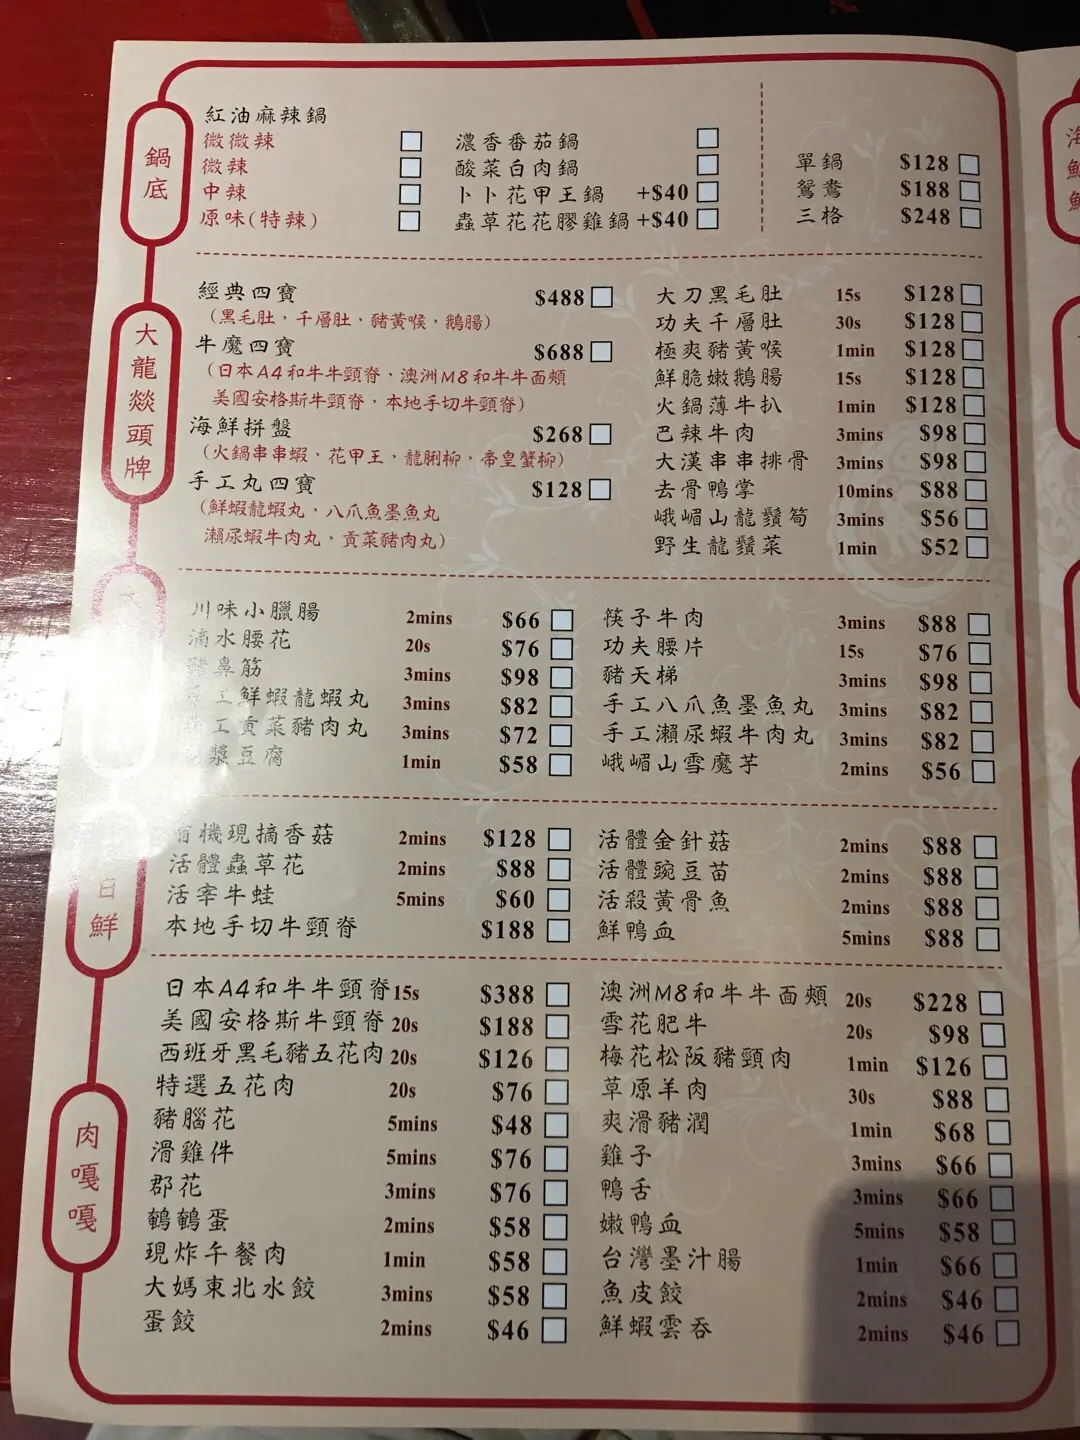 鍋底
紅油麻辣鍋
微微辣
微辣
中辣
原味(特辣)
濃香番茄鍋
酸菜白肉鍋
卜卜花甲王鍋 +$40
蟲草花花膠雞鍋 +$40
單鍋 $128
鴛鴦 $188
三格 $248
大龍燚頭牌
經典四寶 $488
(黑毛肚，千層肚，豬黃喉，鵝腸)
牛魔四寶 $688
(日本A4和牛牛頸脊，澳洲M8和牛牛面頰
美國安格斯牛頸脊，本地手切牛頸脊)
海鮮拼盤 $268
(火鍋串串蝦，花甲王，龍脷柳，帝皇蟹柳)
手工丸四寶 $128
(鮮蝦龍蝦丸，八爪魚墨魚丸
瀨尿蝦牛肉丸，貢菜豬肉丸)
大刀黑毛肚 15s $128
功夫千層肚 30s $128
極爽豬黃喉 1min $128
鮮脆嫩鵝腸 15s $128
火鍋薄牛扒 1min $128
巴辣牛肉 3mins $98
大漢串串排骨 3mins $98
去骨鴨掌 10mins $88
峨嵋山龍鬚筍 3mins $56
野生龍鬚菜 1min $52
川味小臘腸 2mins $66
滴水腰花 20s $76
豬鼻筋 3mins $98
手工鮮蝦龍蝦丸 3mins $82
工貢菜豬肉丸 3mins $72
漿豆腐 1min $58
筷子牛肉 3mins $88
功夫腰片 15s $76
豬天梯 3mins $98
手工八爪魚墨魚丸 3mins $82
手工瀨尿蝦牛肉丸 3mins $82
峨嵋山雪魔芋 2mins $56
日鮮
有機現摘香菇 2mins $128
活體蟲草花 2mins $88
活宰牛蛙 5mins $60
本地手切牛頸脊 $188
活體金針菇 2mins $88
活體豌豆苗 2mins $88
活殺黃骨魚 2mins $88
鮮鴨血 5mins $88
肉嘎嘎
日本A4和牛牛頸脊 15s $388
美國安格斯牛頸脊 20s $188
西班牙黑毛豬五花肉 20s $126
特選五花肉 20s $76
豬腦花 5mins $48
滑雞件 5mins $76
郡花 3mins $76
鵪鶉蛋 2mins $58
現炸午餐肉 1min $58
大媽東北水餃 3mins $58
蛋餃 2mins $46
澳洲M8和牛牛面頰 20s $228
雪花肥牛 20s $98
梅花松阪豬頸肉 1min $126
草原羊肉 30s $88
爽滑豬潤 1min $68
雞子 3mins $66
鴨舌 3mins $66
嫩鴨血 5mins $58
台灣墨汁腸 1min $66
魚皮餃 2mins $46
鮮蝦雲吞 2mins $46